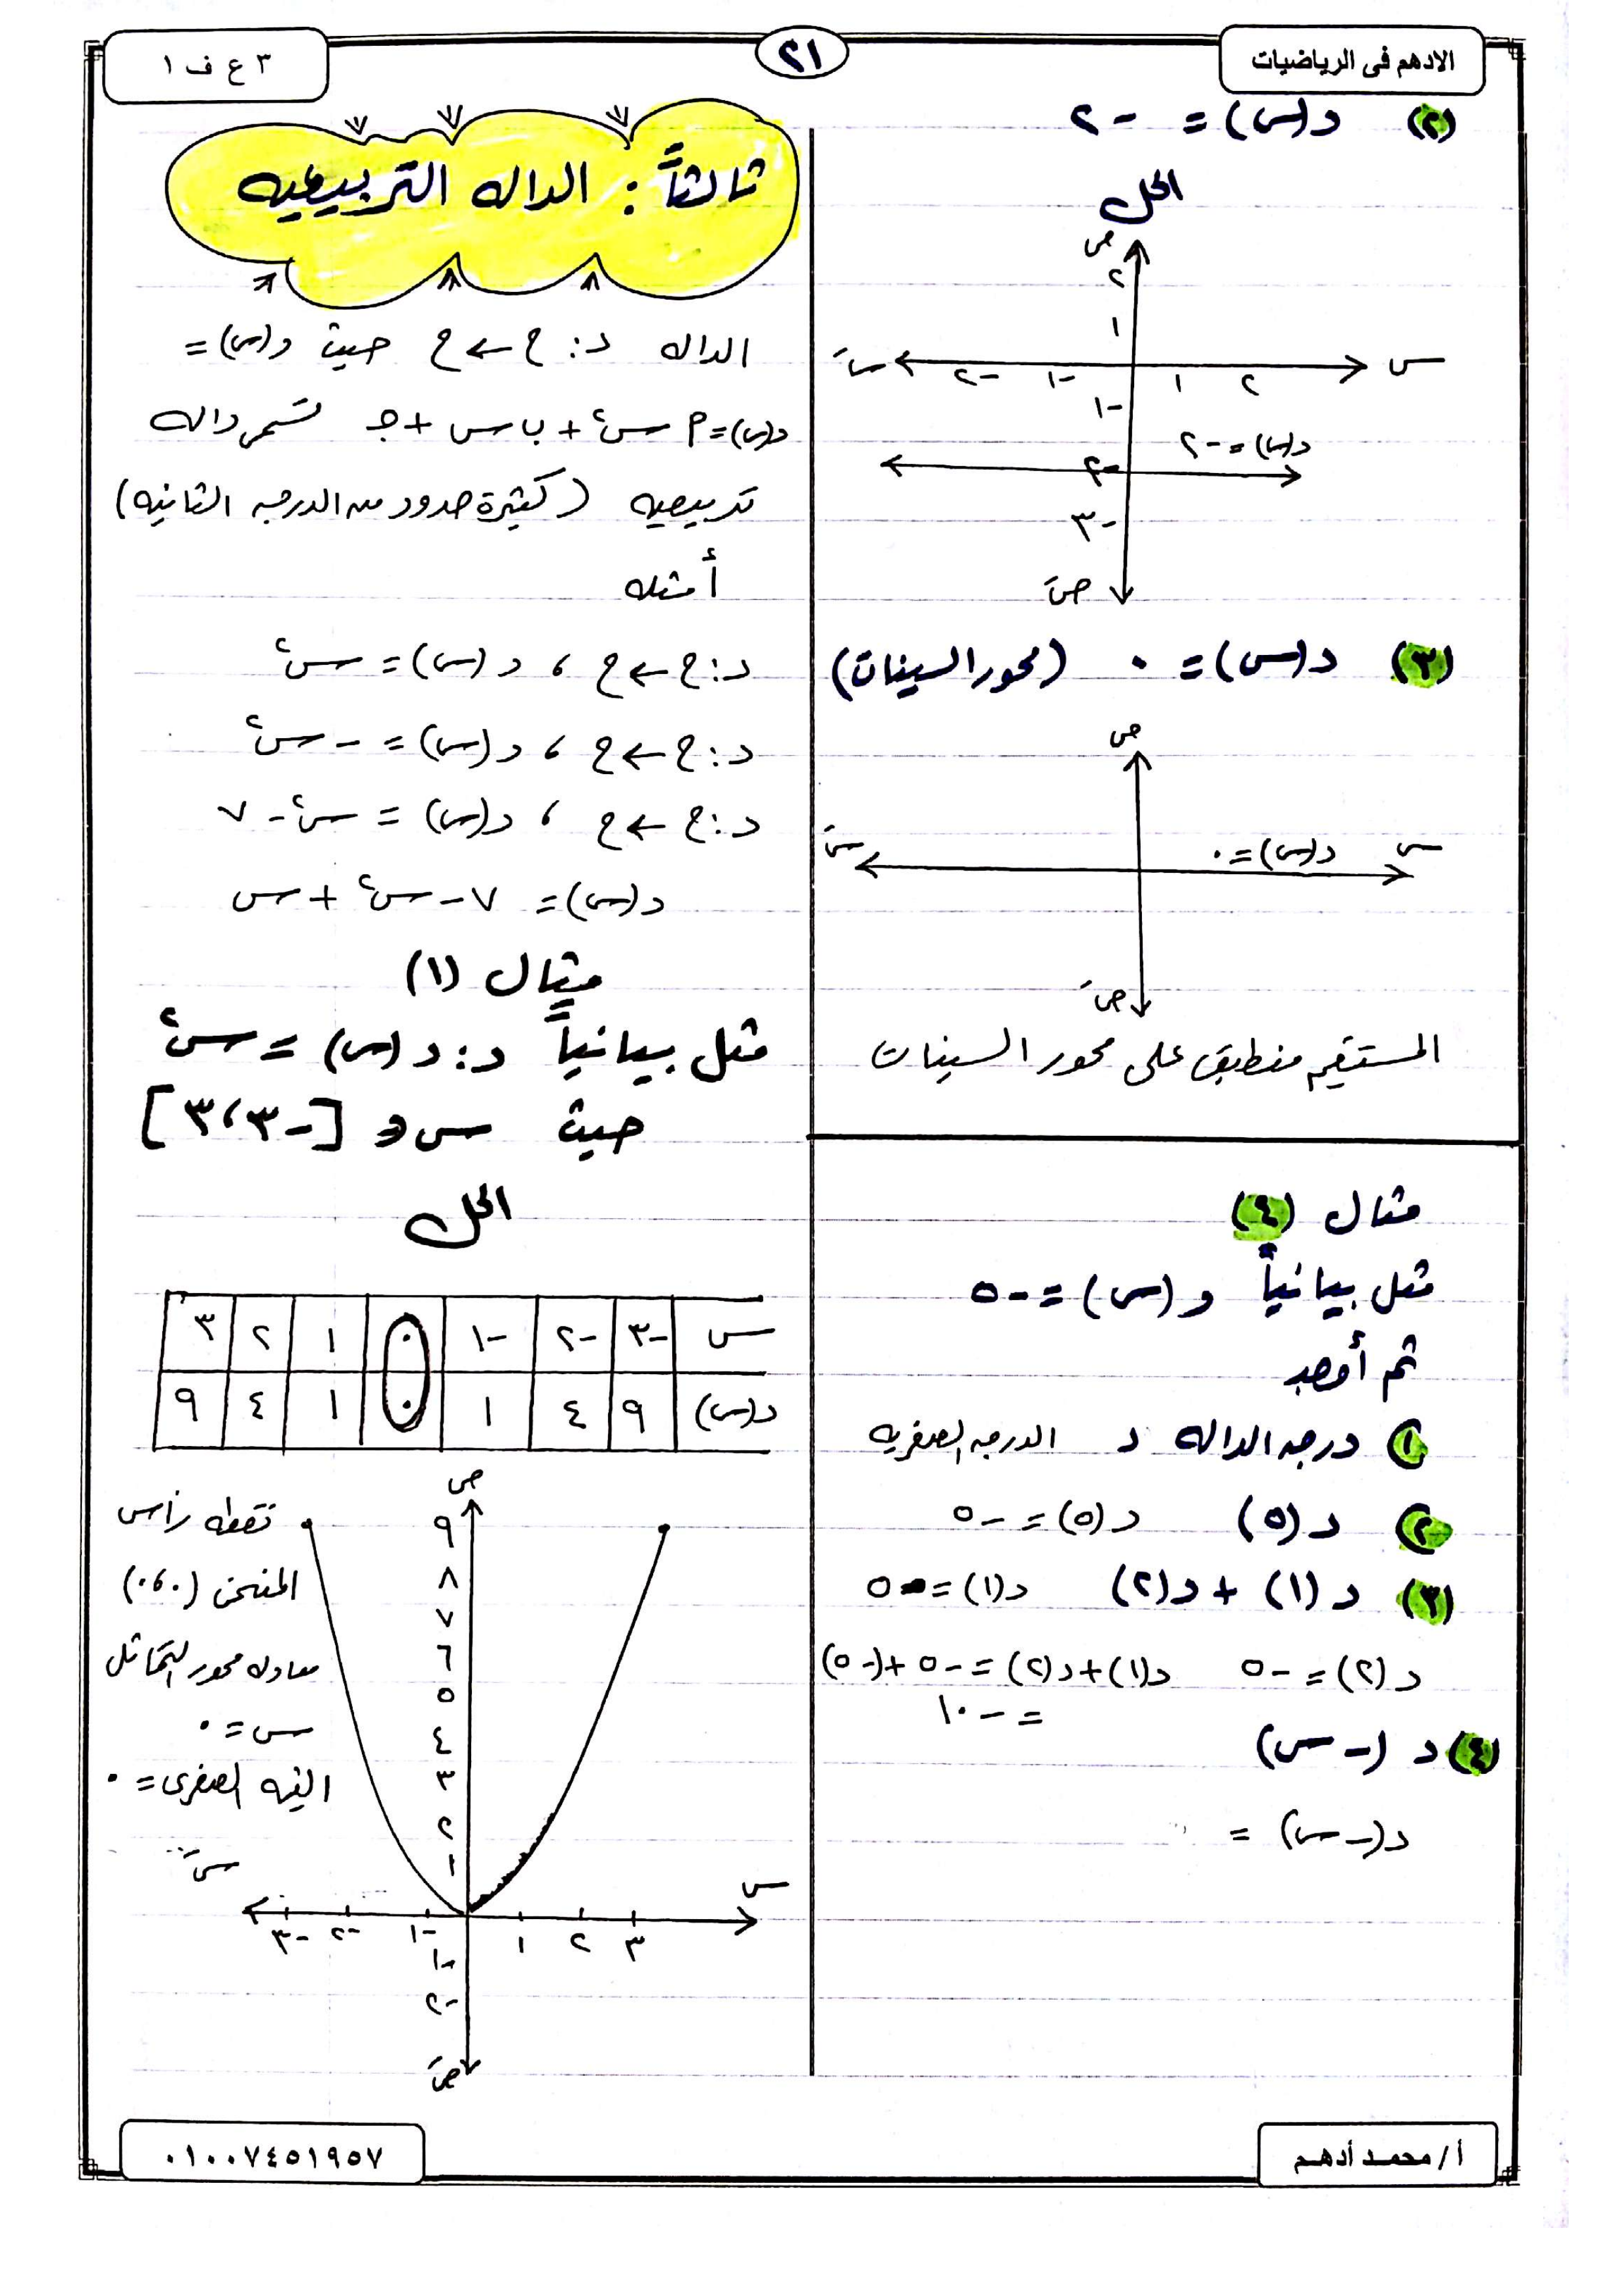 الادهم فى الرياضيات
٢١
٣ ع ف ١
(٢) د(س) = -٢
الحل
ص
٢
١
س -٢ -١ ١ ٢ سَ
-١
د(س) = -٢
-٢
-٣
صَ
(٣) د(س) = ٠ (محور السينات)
ص
سَ د(س) = ٠ س
صَ
المستقيم منطبق على محور السينات
مثال (٤)
مثل بيانياً د(س) = -٥
ثم أوجد
١ درجه الداله د الدرجه الصفريه
٢ د(٥) د(٥) = -٥
(٣) د(١) + د(٢) د(١) = -٥
د(٢) = -٥ د(١) + د(٢) = -٥ + (-٥)
= -١٠
(٤) د(-س)
د(-س) =
ثالثاً : الداله التربيعيه
الداله د: ح ← ح حيث د(س) =
د(س) = أ س٢ + ب س + جـ تسمى داله
تربيعيه (كثيرة حدود من الدرجه الثانيه)
أمثله
د: ح ← ح ، د(س) = س٢
د: ح ← ح ، د(س) = - س٢
د: ح ← ح ، د(س) = س٢ - ٧
د(س) = ٧ - س٢ + س
مثال (١)
مثل بيانياً د: د(س) = س٢
حيث س ∈ [-٣ ، ٣]
الحل
س -٣ -٢ -١ ٠ ١ ٢ ٣
د(س) ٩ ٤ ١ ٠ ١ ٤ ٩
ص
نقطه رأس
المنحنى (٠ ، ٠)
معادله محور التماثل
س = ٠
القيمه الصغرى = ٠
٩
٨
٧
٦
٥
٤
٣
٢
١
سَ س
-٣ -٢ -١ ١ ٢ ٣
-١
-٢
صَ
أ / محمـد أدهـم
٠١٠٠٧٤٥١٩٥٧